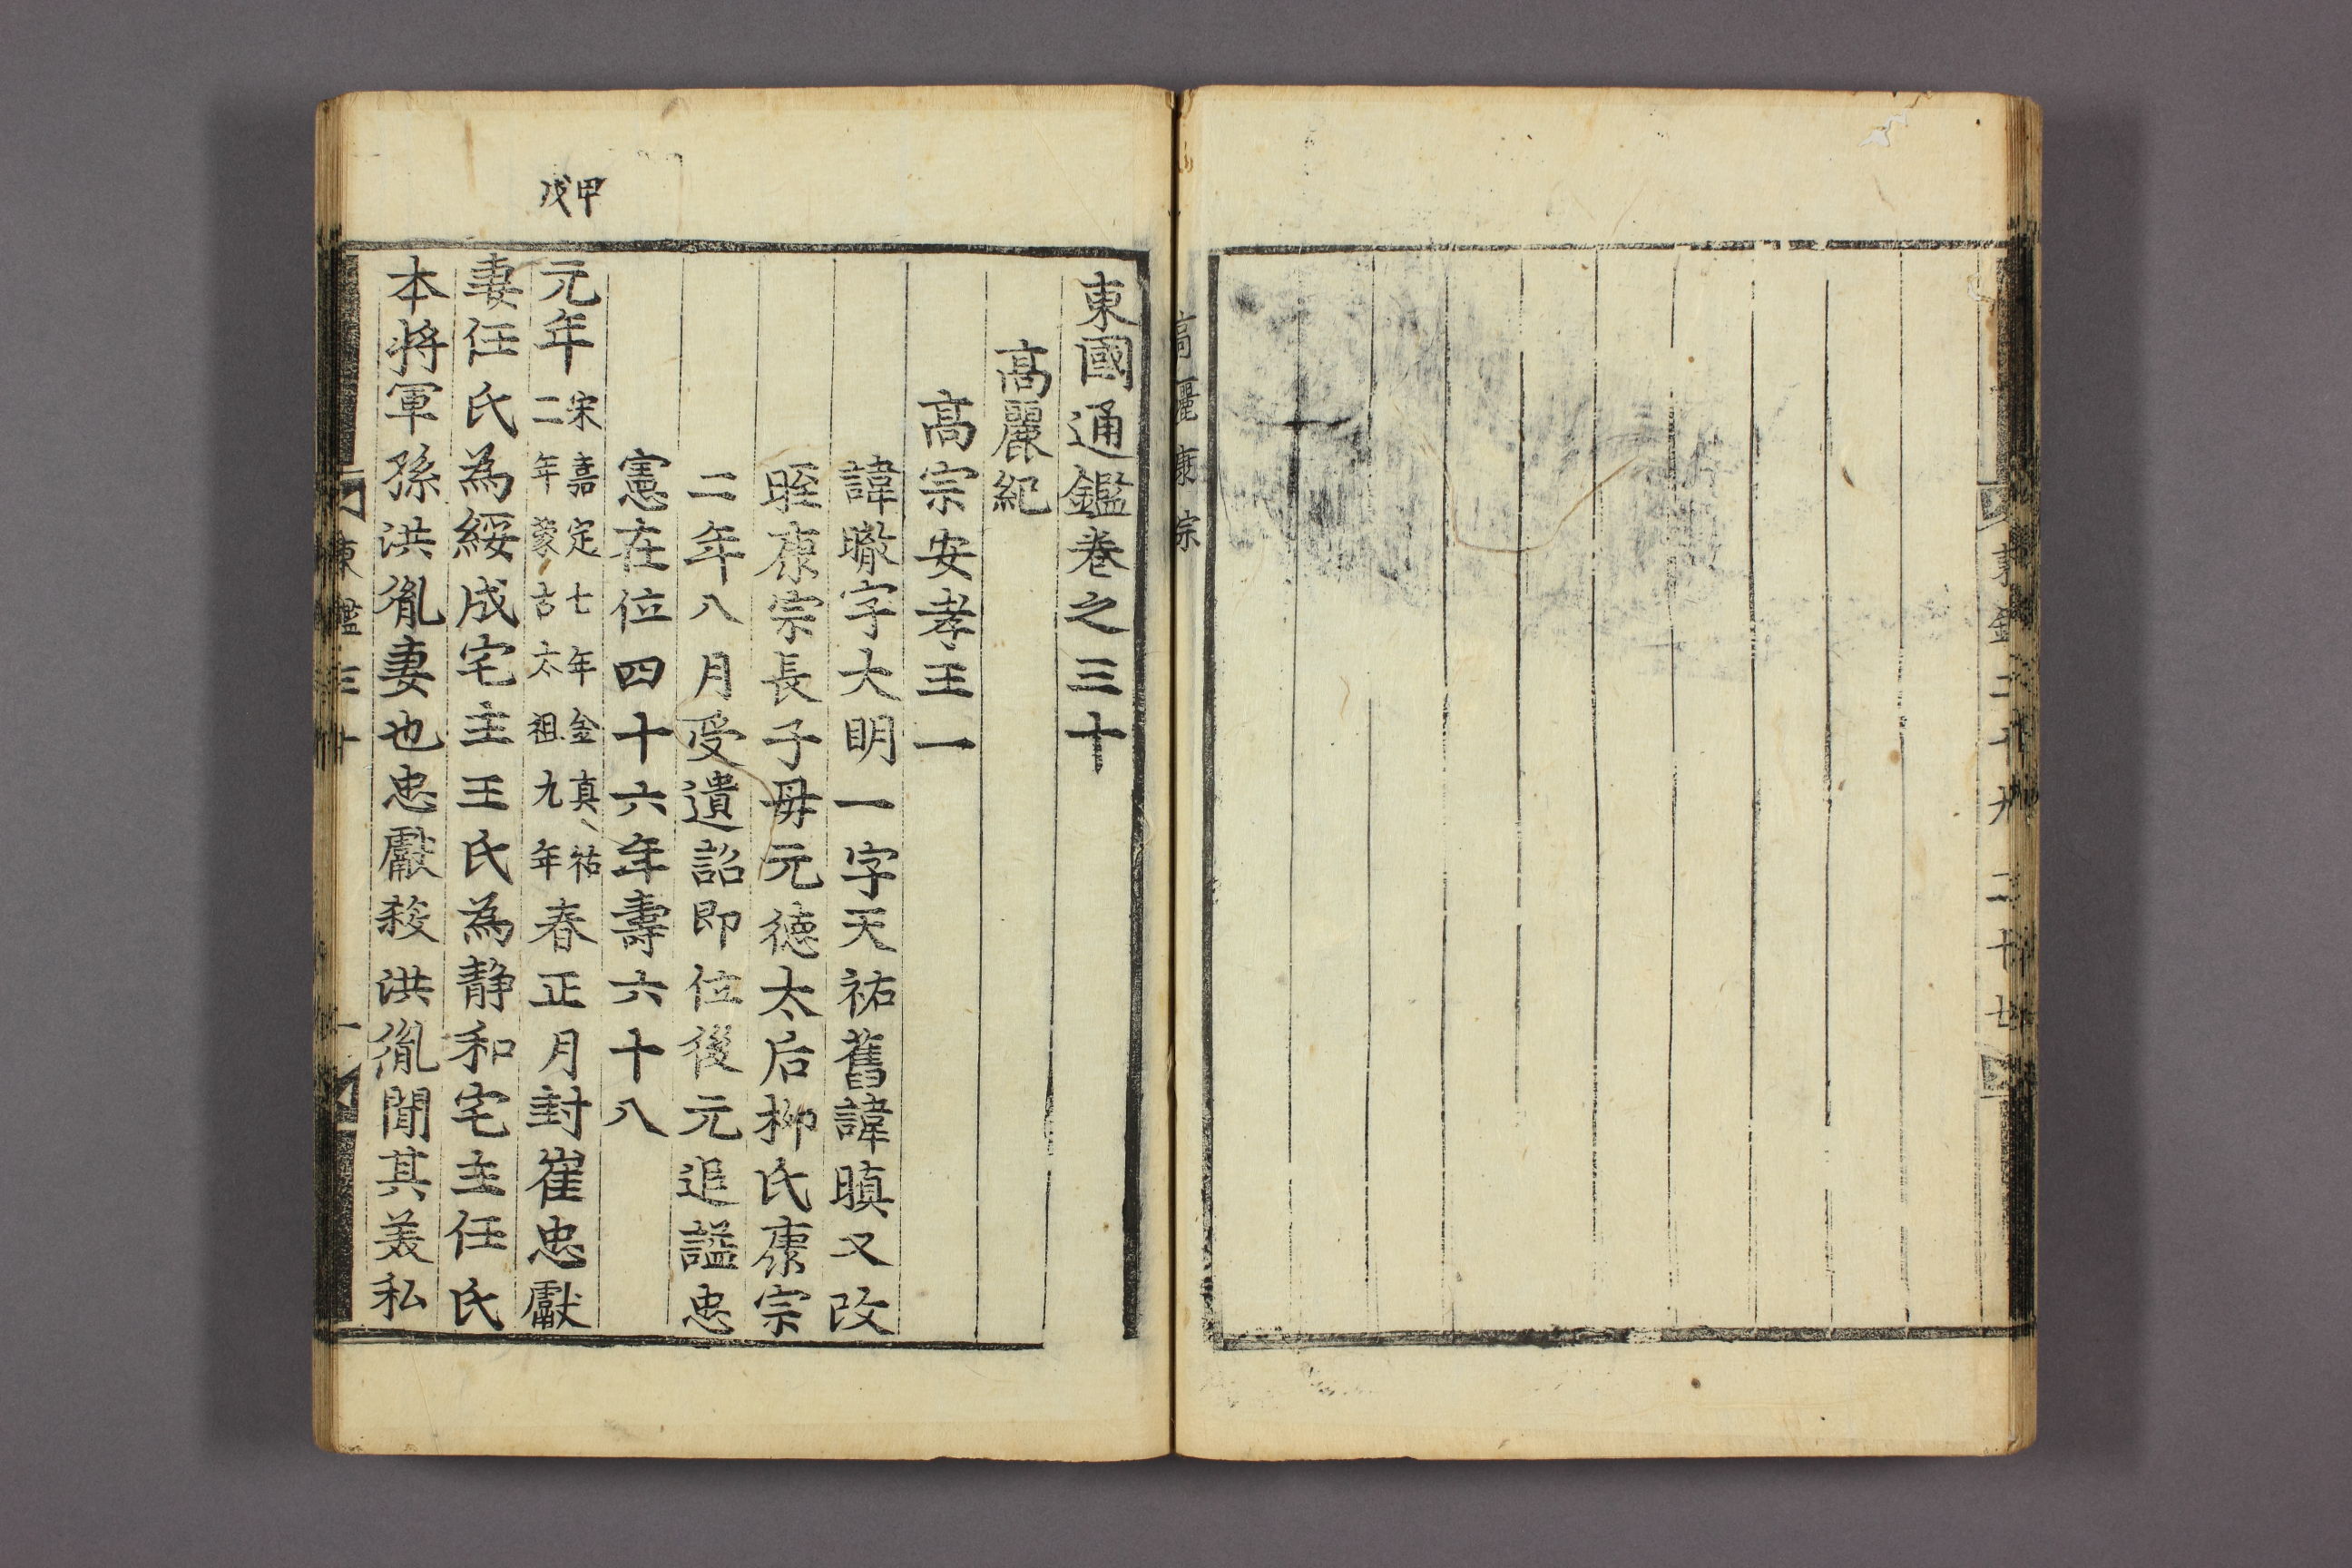 高麗康宗
東國通鑑卷之三十
高麗紀
高宗安孝王一
諱㬚字大明一字天祐舊諱瞋又改
晊康宗長子母元德太后柳氏康宗
二年八月受遺詔即位後元追謚忠
憲在位四十六年壽六十八
甲戌
元年宋嘉定七年金真祐二年蒙古太祖九年春正月封崔忠獻
妻任氏為綏成宅主王氏為靜和宅主任氏
本將軍孫洪胤妻也忠獻殺洪胤聞其美私
東鑑三十 一